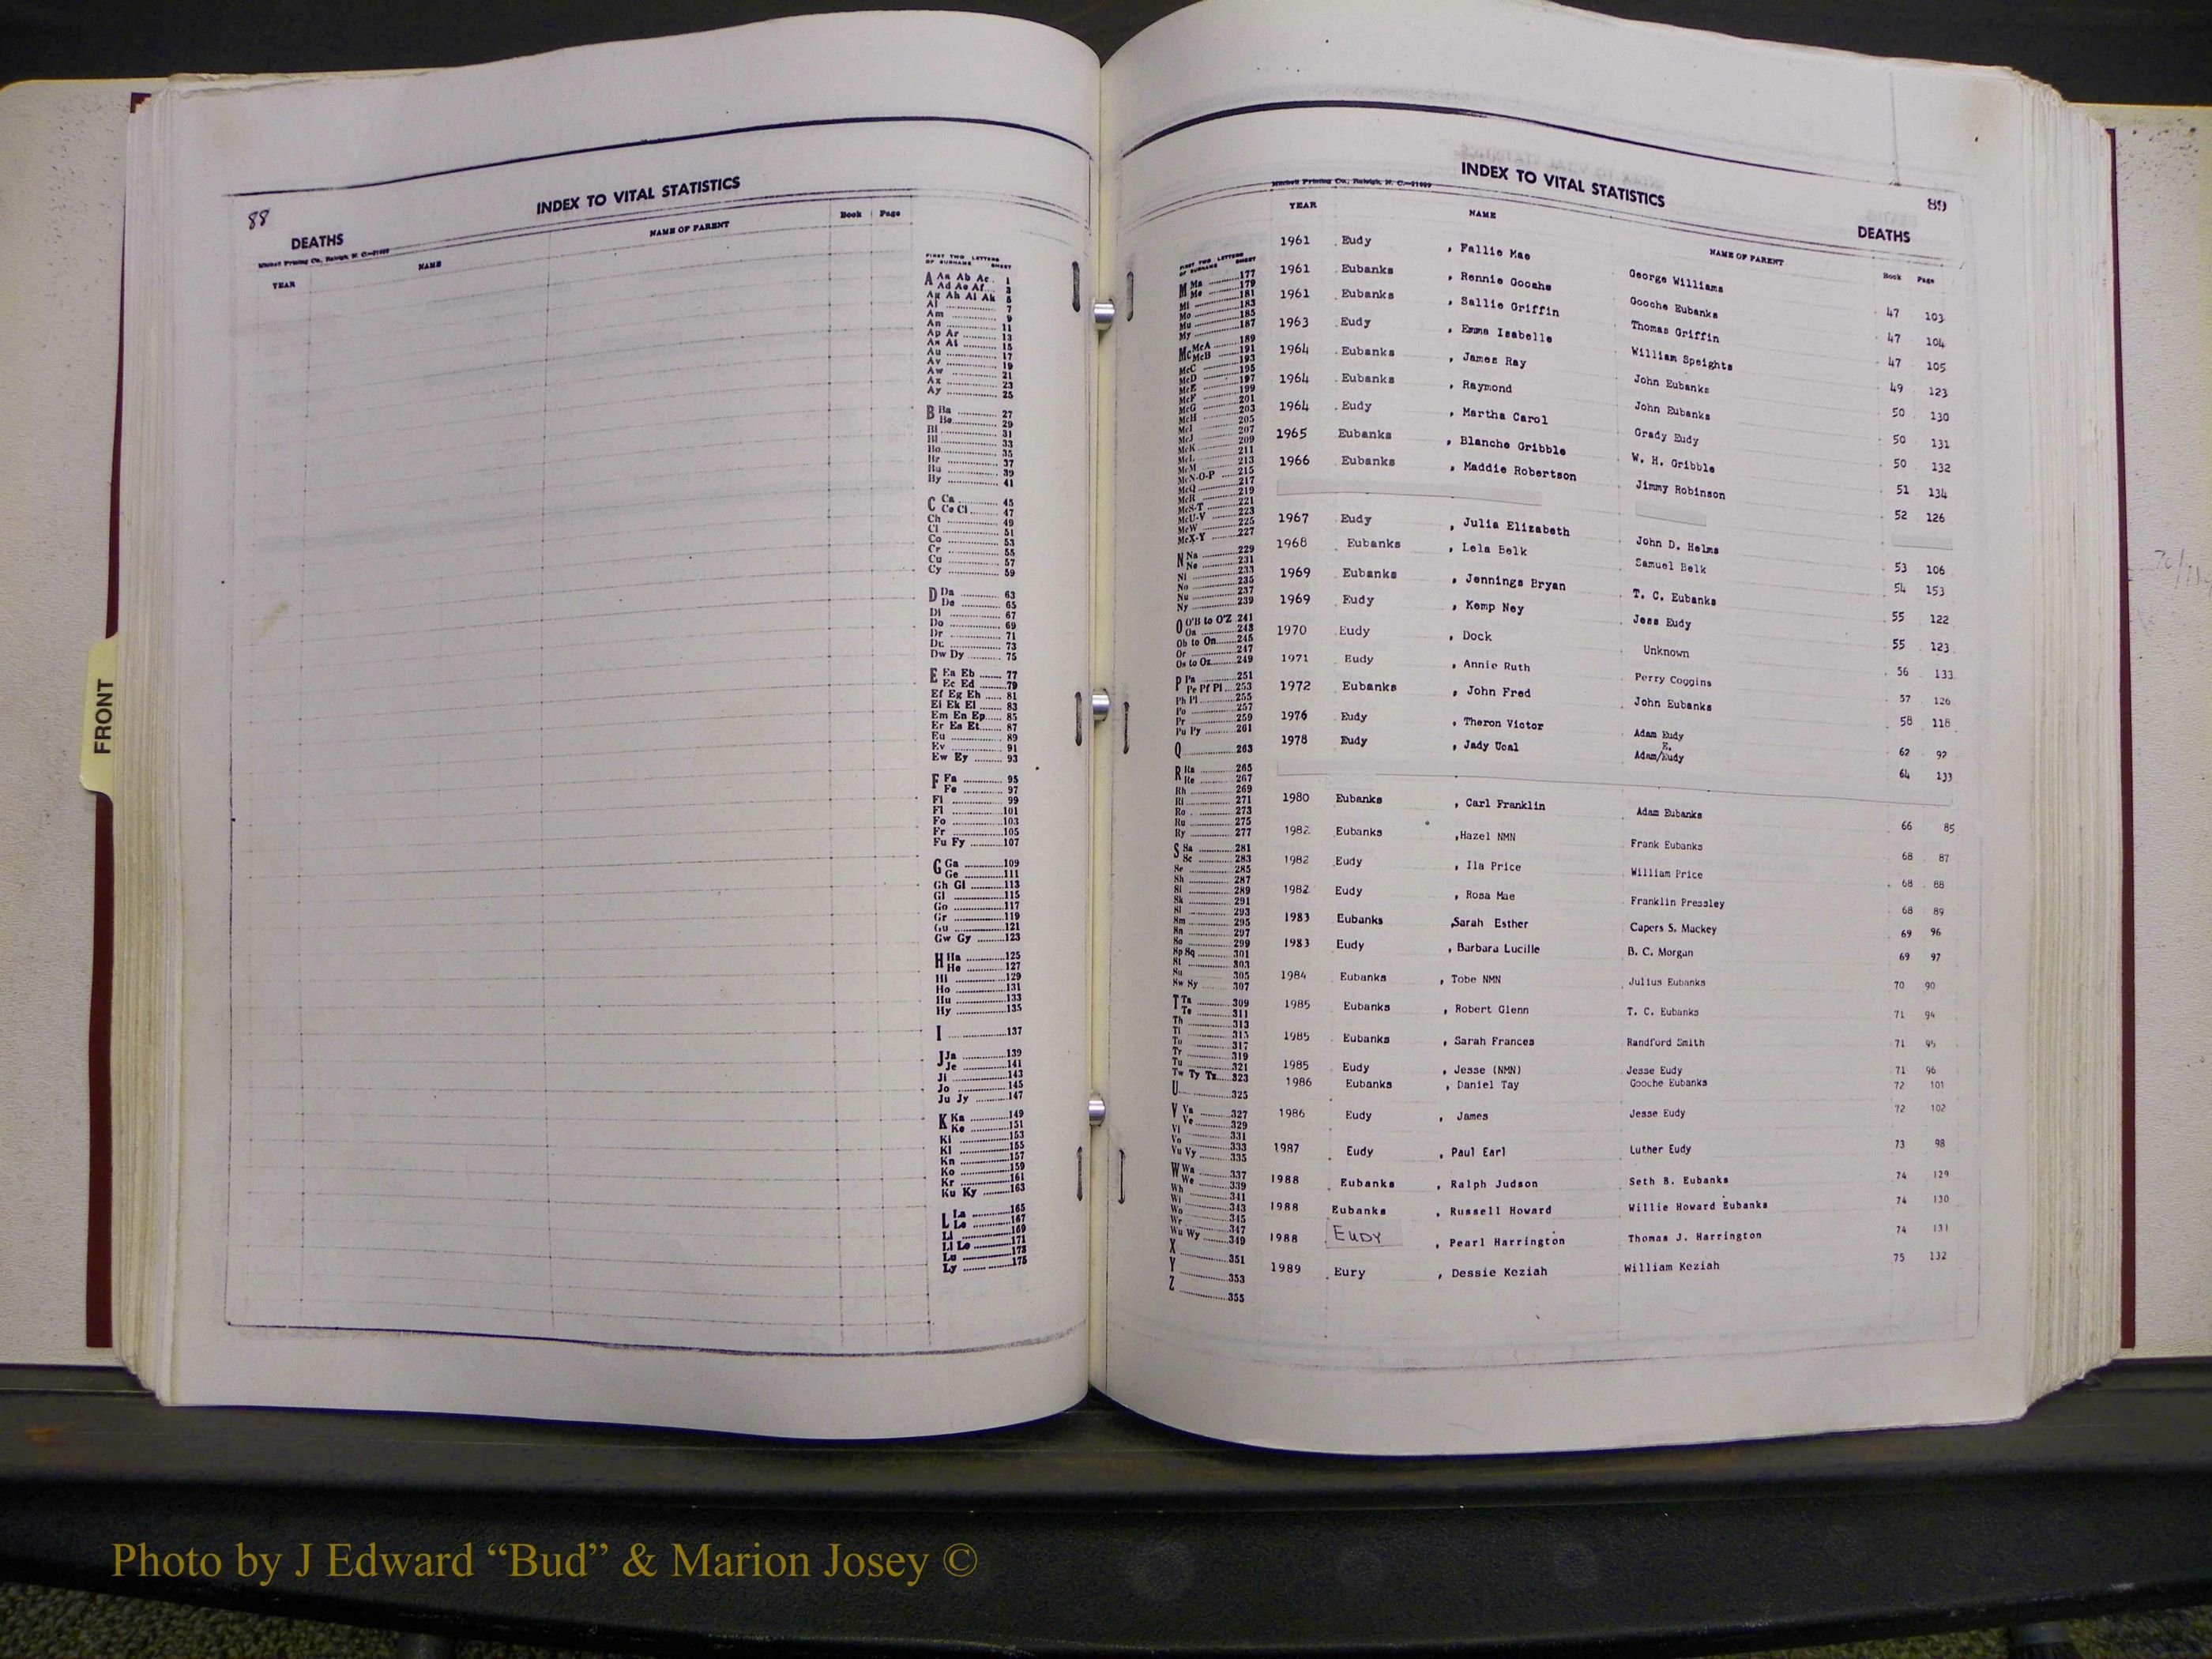 88
INDEX TO VITAL STATISTICS
DEATHS
Mitchell Printing Co., Raleigh, N. C.
YEAR NAME NAME OF PARENT Book Page
FIRST TWO LETTERS OF SURNAME SHEET
A Aa Ab Ac 1
Ad Ae Af 3
Ag Ah Ai Ak 5
Al 7
Am 9
An 11
Ap Ar 13
As At 15
Au 17
Av 19
Aw 21
Ax 23
Ay 25
B Ba 27
Be 29
Bi 31
Bl 33
Bo 35
Br 37
Bu 39
By 41
C Ca 45
Ce Ci 47
Ch 49
Cl 51
Co 53
Cr 55
Cu 57
Cy 59
D Da 63
De 65
Di 67
Do 69
Dr 71
Du 73
Dw Dy 75
E Ea Eb 77
Ec Ed 79
Ef Eg Eh 81
Ei Ek El 83
Em En Ep 85
Er Es Et 87
Eu 89
Ev 91
Ew Ey 93
F Fa 95
Fe 97
Fi 99
Fl 101
Fo 103
Fr 105
Fu Fy 107
G Ga 109
Ge 111
Gh Gi 113
Gl 115
Go 117
Gr 119
Gu 121
Gw Gy 123
H Ha 125
He 127
Hi 129
Ho 131
Hu 133
Hy 135
I 137
J Ja 139
Je 141
Ji 143
Jo 145
Ju Jy 147
K Ka 149
Ke 151
Ki 153
Kl 155
Kn 157
Ko 159
Kr 161
Ku Ky 163
L La 165
Le 167
Li 169
Ll Lo 171
Lu 173
Ly 175
FRONT
INDEX TO VITAL STATISTICS
89
Mitchell Printing Co., Raleigh, N. C.
DEATHS
YEAR NAME NAME OF PARENT Book Page
FIRST TWO LETTERS OF SURNAME SHEET
M Ma 177
Me 179
Mi 181
Mo 183
Mu 185
My 187
Mc McA 189
McB 191
McC 193
McD 195
McE 197
McF 199
McG 201
McH 203
McI 205
McJ 207
McK 209
McL 211
McM 213
McN-O-P 215
McQ 217
McR 219
McS-T 221
McU-V 223
McW 225
McX-Y 227
N Na 229
Ne 231
Ni 233
No 235
Nu 237
Ny 239
O O'B to O'Z 241
Oa 243
Ob to On 245
Or 247
Os to Oz 249
P Pa 251
Pe Pf Pi 253
Ph Pl 255
Po 257
Pr 259
Pu Py 261
Q 263
R Ra 265
Re 267
Rh 269
Ri 271
Ro 273
Ru 275
Ry 277
S Sa 281
Sc 283
Se 285
Sh 287
Si 289
Sk 291
Sl 293
Sm 295
Sn 297
So 299
Sp Sq 301
St 303
Su 305
Sw Sy 307
T Ta 309
Te 311
Th 313
Ti 315
To 317
Tr 319
Tu 321
Tw Ty Tz 323
U 325
V Va 327
Ve 329
Vi 331
Vo 333
Vu Vy 335
W Wa 337
We 339
Wh 341
Wi 343
Wo 345
Wr 347
Wu Wy 349
X 351
Y 353
Z 355
1961 Eudy , Fallie Mae George Williams 47 103
1961 Eubanks , Rennie Gooche Gooche Eubanks 47 104
1961 Eubanks , Sallie Griffin Thomas Griffin 47 105
1963 Eudy , Emma Isabelle William Speights 49 123
1964 Eubanks , James Ray John Eubanks 50 130
1964 Eubanks , Raymond John Eubanks 50 131
1964 Eudy , Martha Carol Grady Eudy 50 132
1965 Eubanks , Blanche Gribble W. H. Gribble 51 134
1966 Eubanks , Maddie Robertson Jimmy Robinson 52 126
1967 Eudy , Julia Elizabeth John D. Helms 53 106
1968 Eubanks , Lela Belk Samuel Belk 54 153
1969 Eubanks , Jennings Bryan T. C. Eubanks 55 122
1969 Eudy , Kemp Ney Jess Eudy 55 123
1970 Eudy , Dock Unknown 56 133
1971 Eudy , Annie Ruth Perry Coggins 57 126
1972 Eubanks , John Fred John Eubanks 58 118
1976 Eudy , Theron Victor Adam Eudy 62 92
1978 Eudy , Jady Ucal Adam/E. Eudy 64 133
1980 Eubanks , Carl Franklin Adam Eubanks 66 85
1982 Eubanks ,Hazel NMN Frank Eubanks 68 87
1982 Eudy , Ila Price William Price 68 88
1982 Eudy , Rosa Mae Franklin Pressley 68 89
1983 Eubanks ,Sarah Esther Capers S. Mackey 69 96
1983 Eudy , Barbara Lucille B. C. Morgan 69 97
1984 Eubanks , Tobe NMN Julius Eubanks 70 90
1985 Eubanks , Robert Glenn T. C. Eubanks 71 94
1985 Eubanks , Sarah Frances Randford Smith 71 95
1985 Eudy , Jesse (NMN) Jesse Eudy 71 96
1986 Eubanks , Daniel Tay Gooche Eubanks 72 101
1986 Eudy , James Jesse Eudy 72 102
1987 Eudy , Paul Earl Luther Eudy 73 98
1988 Eubanks , Ralph Judson Seth B. Eubanks 74 129
1988 Eubanks , Russell Howard Willie Howard Eubanks 74 130
1988 EUDY , Pearl Harrington Thomas J. Harrington 74 131
1989 Eury , Dessie Keziah William Keziah 75 132
Photo by J Edward “Bud” & Marion Josey ©